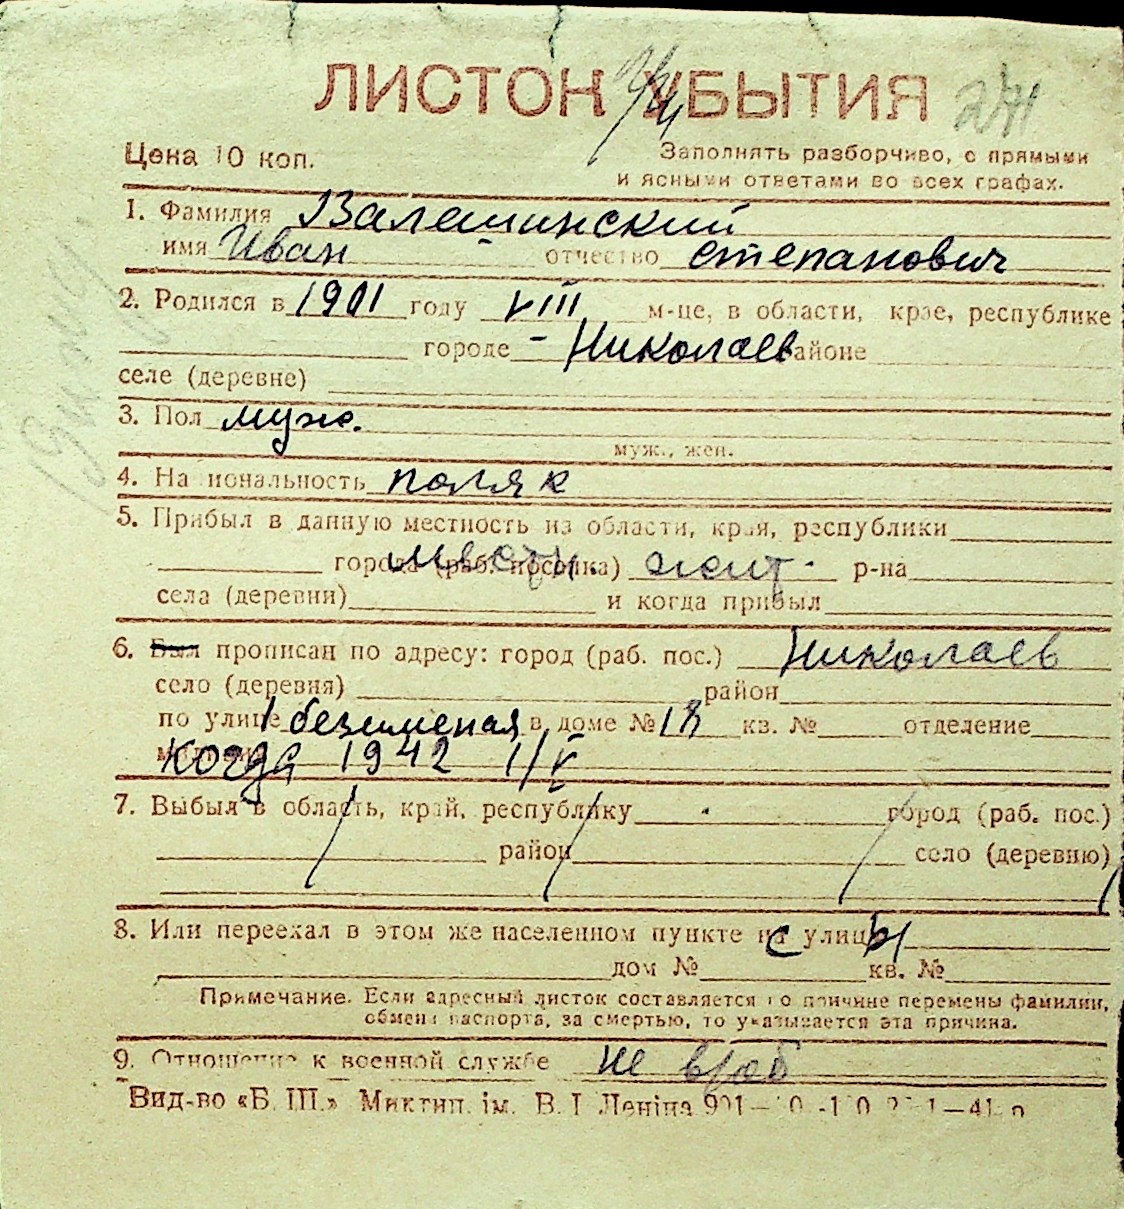 ЛИСТОК УБЫТИЯ 271
Цена 10 коп.
Заполнять разборчиво, с прямыми
и ясными ответами во всех графах.
1. Фамилия Валешинский
имя Иван отчество Степанович
2. Родился в 1901 году VIII м-це, в области, крае, республике
городе - Николаев районе
селе (деревне)
3. Пол муж.
муж., жен.
4. Национальность поляк
5. Прибыл в данную местность из области, края, республики
города (раб. поселка) местн. жит. р-на
села (деревни) и когда прибыл
6. Был прописан по адресу: город (раб. пос.) Николаев
село (деревня) район
по улице 1 безименая в доме № 18 кв. № отделение
когда 1942 1/V
7. Выбыл в область, край, республику город (раб. пос.)
район село (деревню)
8. Или переехал в этом же населенном пункте с улицы
дом № кв. №
Примечание. Если адресный листок составляется по причине перемены фамилии,
обмена паспорта, за смертью, то указывается эта причина.
9. Отношение к военной службе не
Вид-во «Б. Ш.» Миктип. ім. В. І. Леніна